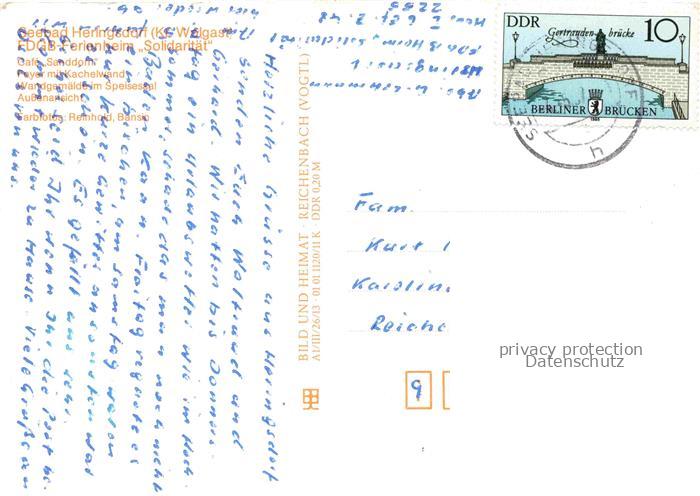 Seebad Heringsdorf (Kr. Wolgast)
FDGB-Ferienheim „Solidarität"
Café „Sanddorn"
Foyer mit Kachelwand
Wandgemälde im Speisesaal
Außenansicht
Farbfotos: Reinhold, Bansin
Herzliche Grüsse aus Heringsdorf
senden Euch Waltraud und
Gerhard. Wir hatten bis Donners
tag ein Urlaubswetter wie im Hoch
sommer, schade das man noch nicht
Baden kann. Freitag regnete es
ein bischen, am Samstag waren
kurze Gewitter ansonsten war
es schön. Es gefällt uns sehr
gut. Und Ihr wenn Ihr die Post be
kommt wieder zu Hause. Viele Grüße von
uns.
BILD UND HEIMAT · REICHENBACH (VOGTL)
A1/III/26/13 · 01 01 1120/11 K DDR 0,20 M
DDR
Gertraudenbrücke
10
BERLINER BRÜCKEN
1985
4
Fam.
Kurt
Karolin
Reiche
9
privacy protection
Datenschutz